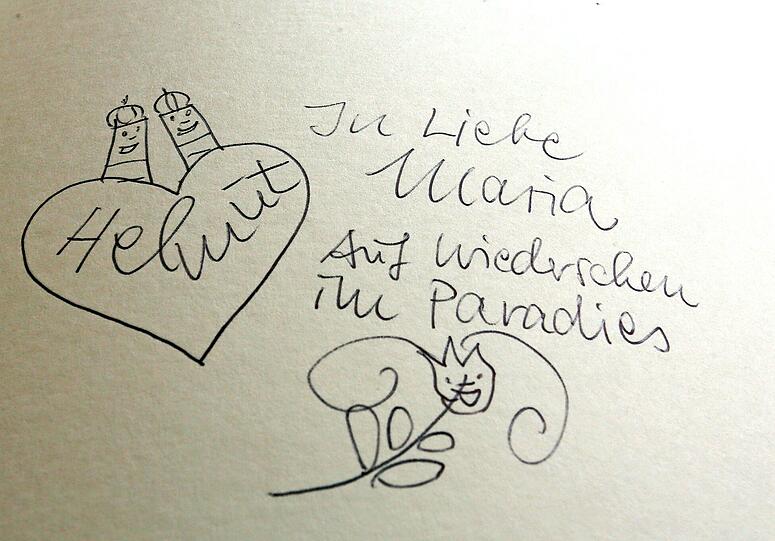 Helmut
In Liebe
Maria
Auf Wiedersehen
im Paradies